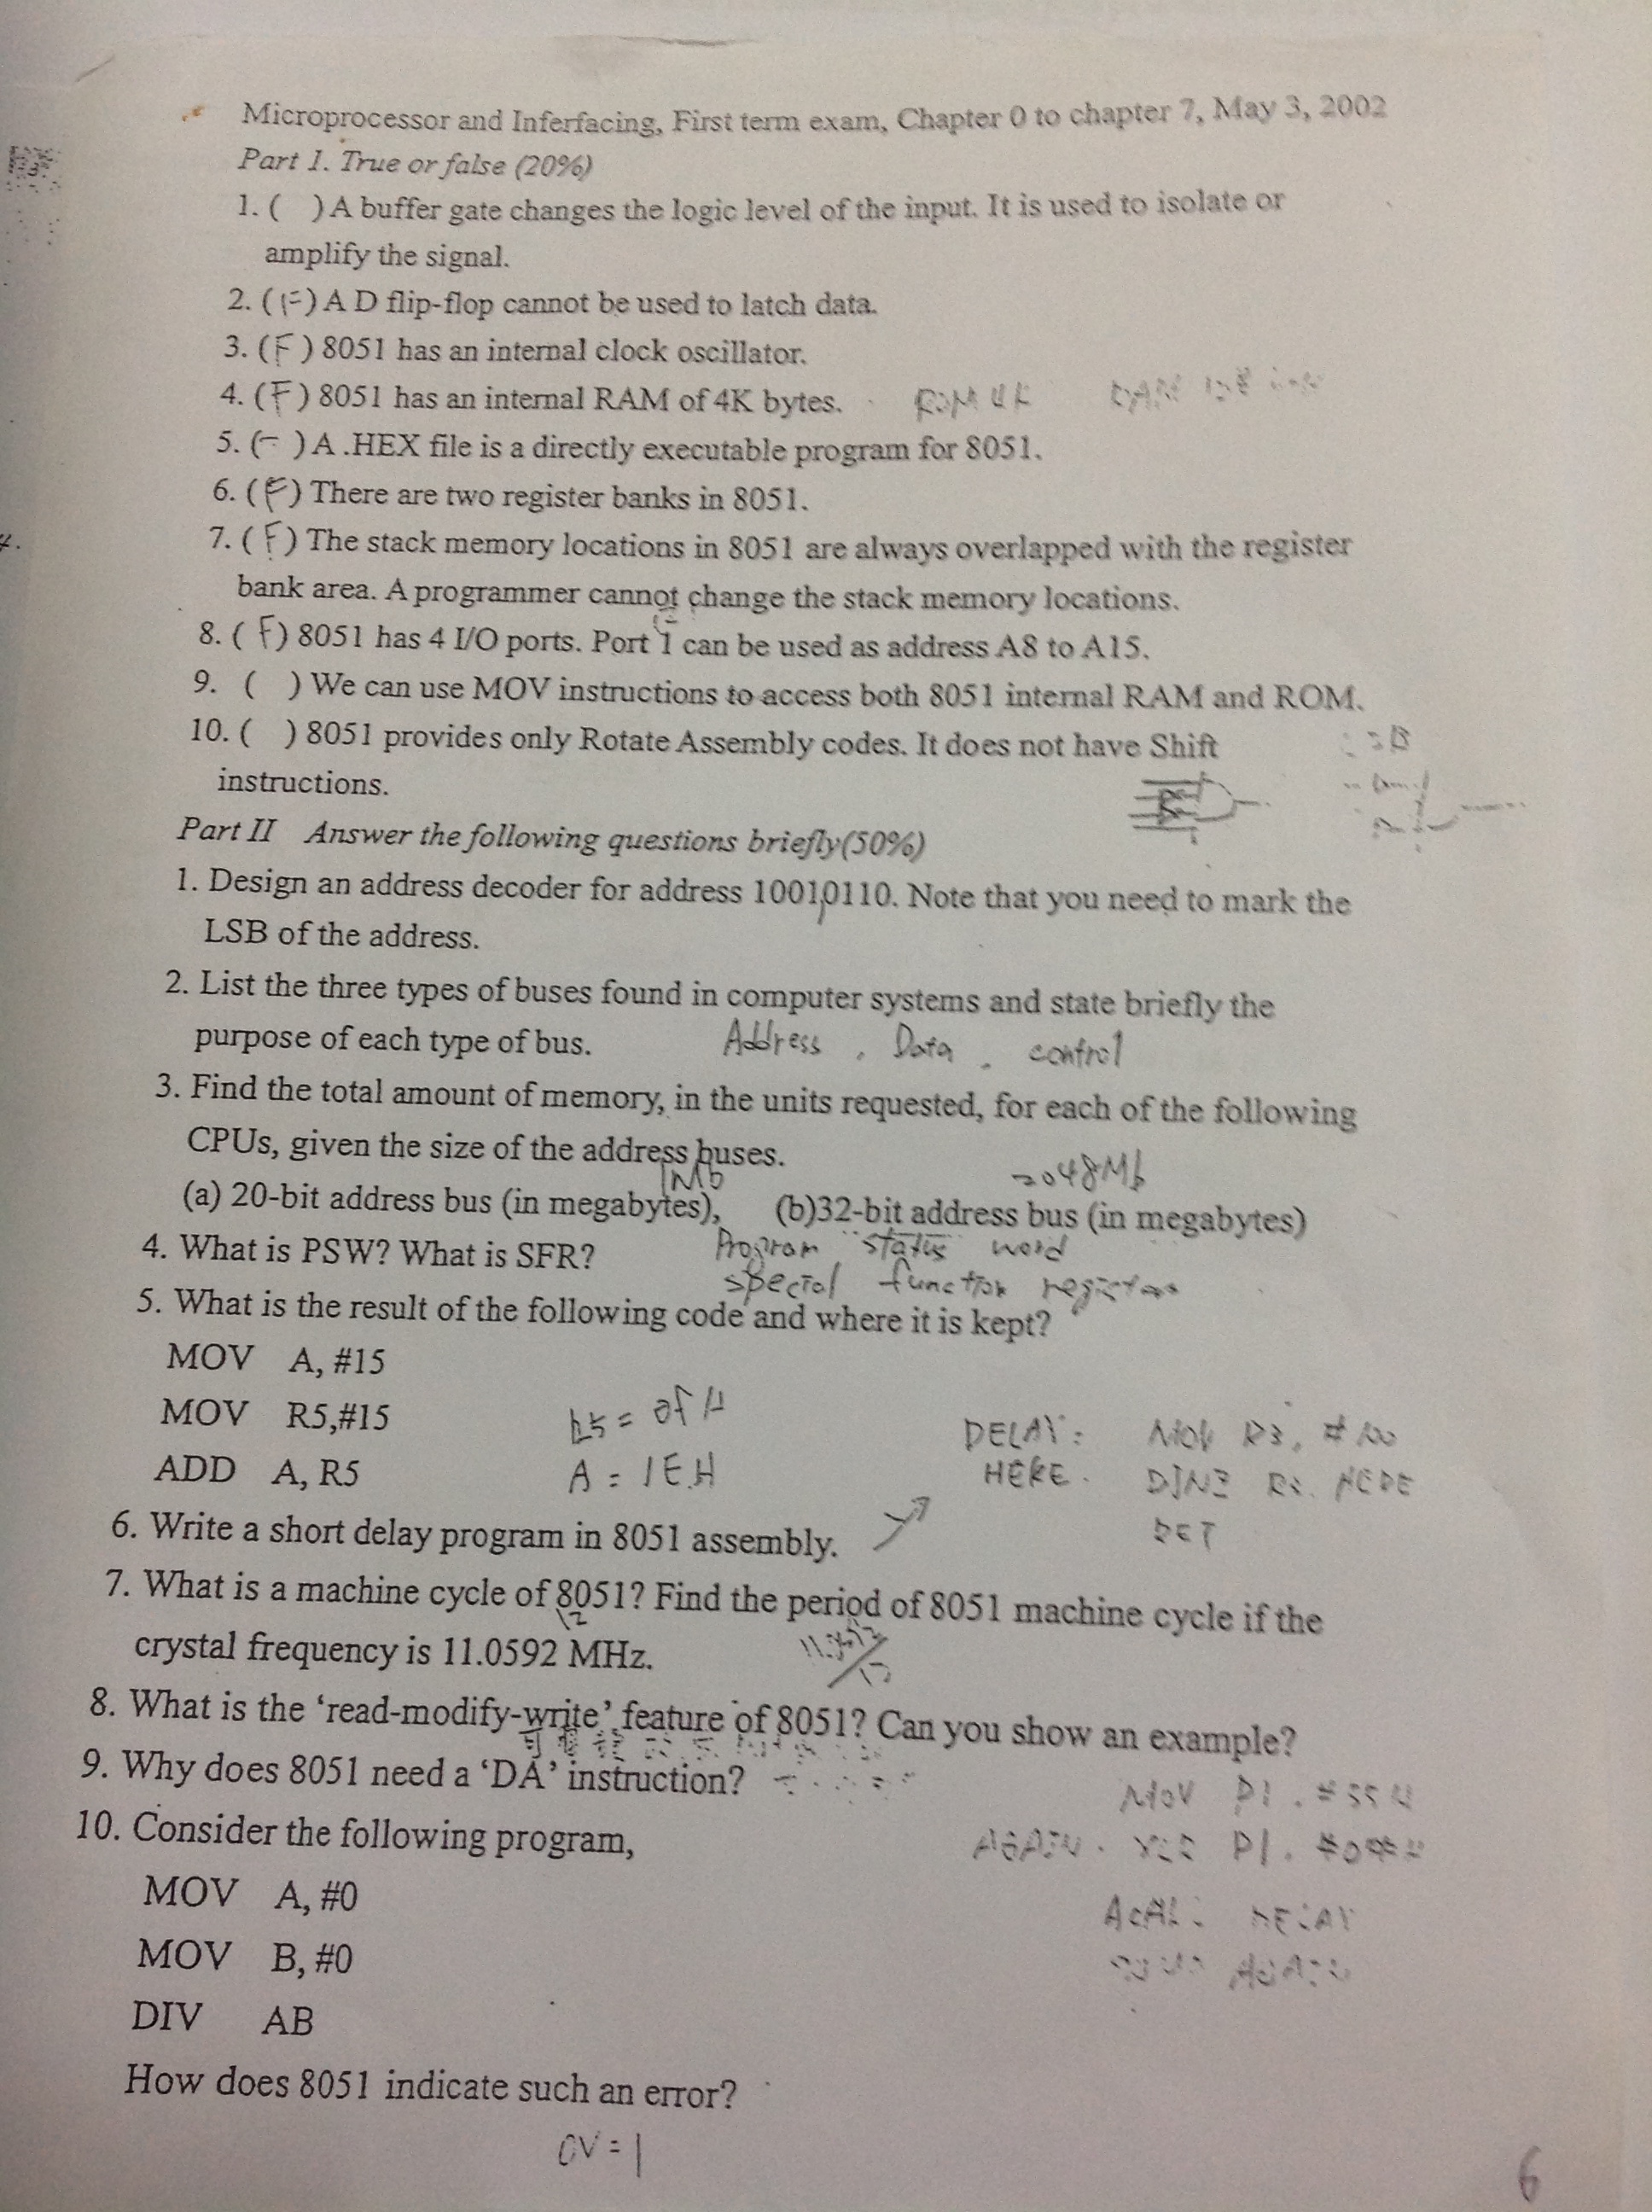 Microprocessor and Inferfacing, First term exam, Chapter 0 to chapter 7, May 3, 2002
Part 1. True or false (20%)
1. (   ) A buffer gate changes the logic level of the input. It is used to isolate or
amplify the signal.
2. (F) A D flip-flop cannot be used to latch data.
3. (F) 8051 has an internal clock oscillator.
4. (F) 8051 has an internal RAM of 4K bytes. ROM 4K RAM
5. (   ) A .HEX file is a directly executable program for 8051.
6. (F) There are two register banks in 8051.
7. (F) The stack memory locations in 8051 are always overlapped with the register
bank area. A programmer cannot change the stack memory locations.
8. (F) 8051 has 4 I/O ports. Port 1 can be used as address A8 to A15.
9. (   ) We can use MOV instructions to access both 8051 internal RAM and ROM.
10. (   ) 8051 provides only Rotate Assembly codes. It does not have Shift
instructions.
Part II Answer the following questions briefly(50%)
1. Design an address decoder for address 10010110. Note that you need to mark the
LSB of the address.
2. List the three types of buses found in computer systems and state briefly the
purpose of each type of bus. Address , Data , control
3. Find the total amount of memory, in the units requested, for each of the following
CPUs, given the size of the address buses.
1Mb 2048Mb
(a) 20-bit address bus (in megabytes), (b)32-bit address bus (in megabytes)
4. What is PSW? What is SFR? Program status word
special function register
5. What is the result of the following code and where it is kept?
MOV A, #15
MOV R5,#15 R5 = 0FH
ADD A, R5 A = 1EH
DELAY: MOV R3, #200
HERE: DJNZ R3, HERE
RET
6. Write a short delay program in 8051 assembly.
7. What is a machine cycle of 8051? Find the period of 8051 machine cycle if the
12
crystal frequency is 11.0592 MHz.
8. What is the ‘read-modify-write’ feature of 8051? Can you show an example?
9. Why does 8051 need a ‘DA’ instruction?
MOV P1, #55H
AGAIN: P1,
ACALL DELAY
AGAIN
10. Consider the following program,
MOV A, #0
MOV B, #0
DIV AB
How does 8051 indicate such an error?
OV = 1
6